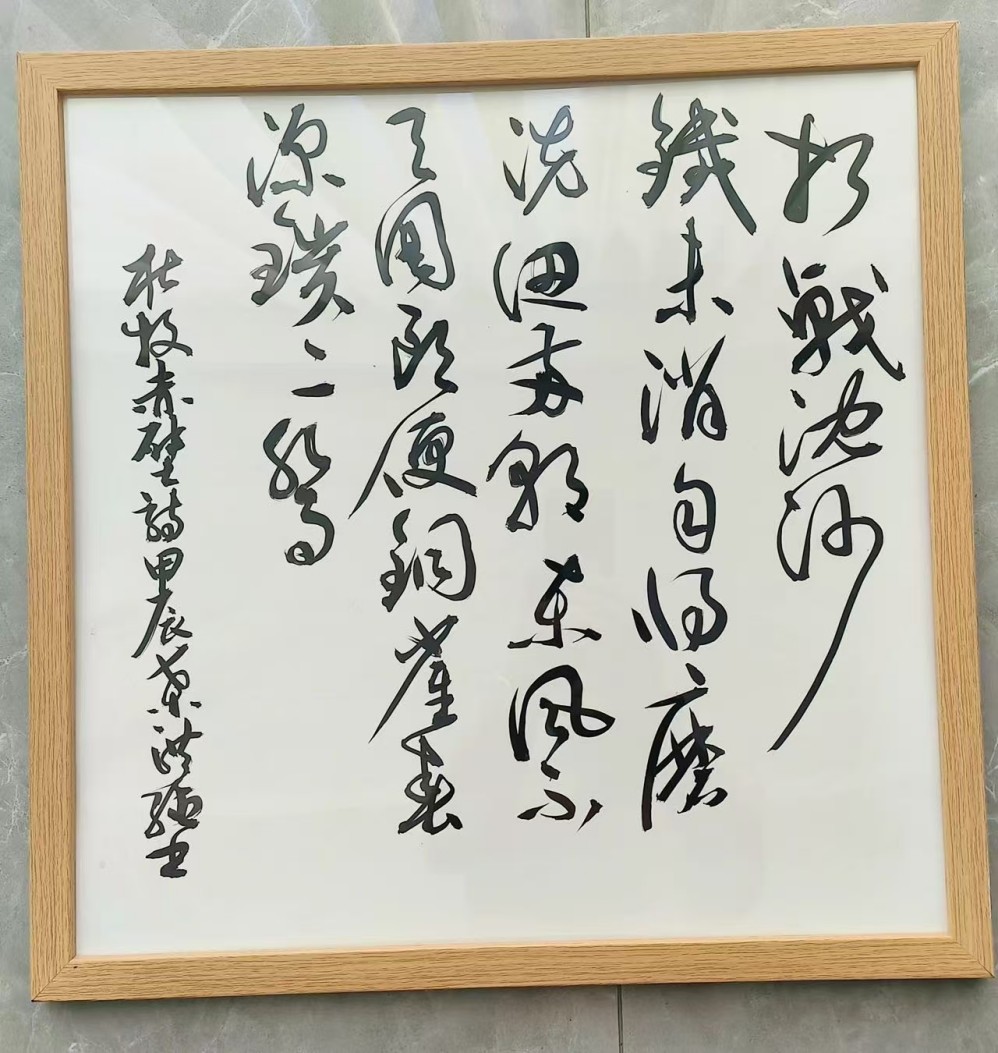 折戰沈沙
鐵未消自將磨
洗前朝東風不
与周郎便銅雀春
深鎖二喬
杜牧赤壁詩甲辰洪书